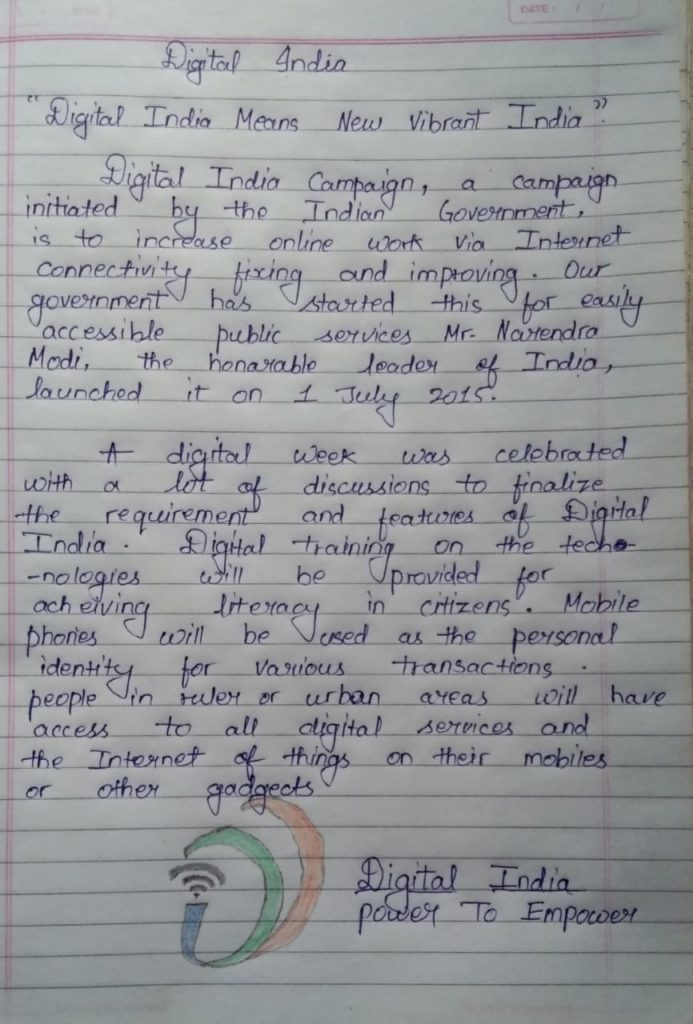 DATE: / /
Digital India
"Digital India Means New Vibrant India".
Digital India Campaign, a campaign
initiated by the Indian Government,
is to increase online work via Internet
connectivity fixing and improving. Our
government has started this for easily
accessible public services Mr. Narendra
Modi, the honarable leader of India,
launched it on 1 July 2015.
A digital week was celebrated
with a lot of discussions to finalize
the requirement and features of Digital
India. Digital training on the techo-
-nologies will be provided for
acheiving literacy in citizens. Mobile
phones will be used as the personal
identity for various transactions.
people in ruler or urban areas will have
access to all digital services and
the Internet of things on their mobiles
or other gadgects
Digital India
Power To Empower